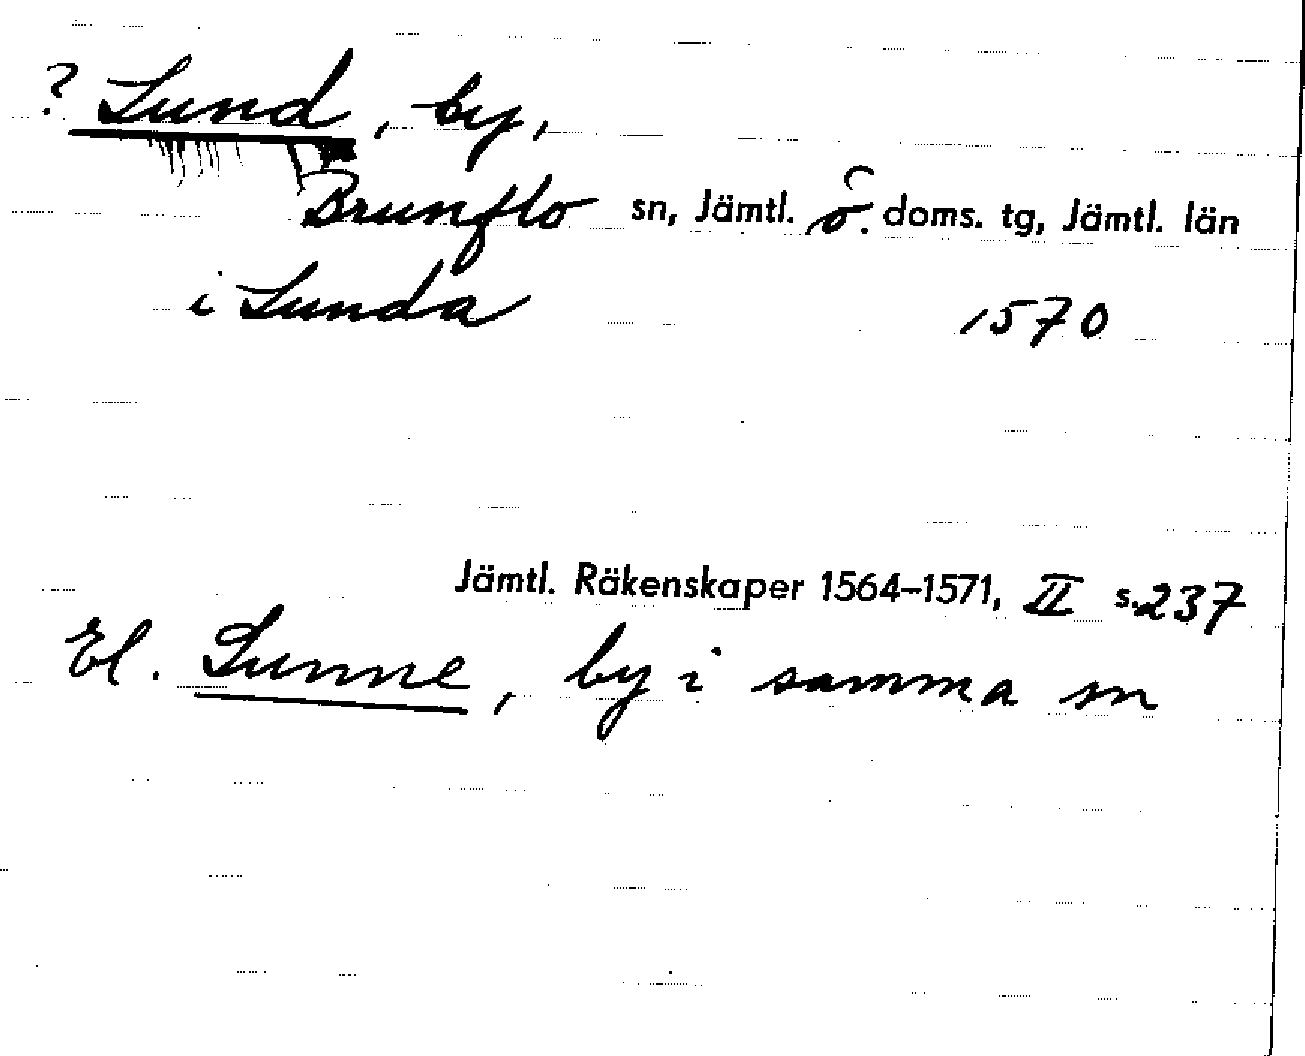 ? Lund, by,
Brunflo sn, Jämtl. ö. doms. tg, Jämtl. län
i Lunda 1570
Jämtl. Räkenskaper 1564–1571, II s. 237
El. Sunne, by i samma sn